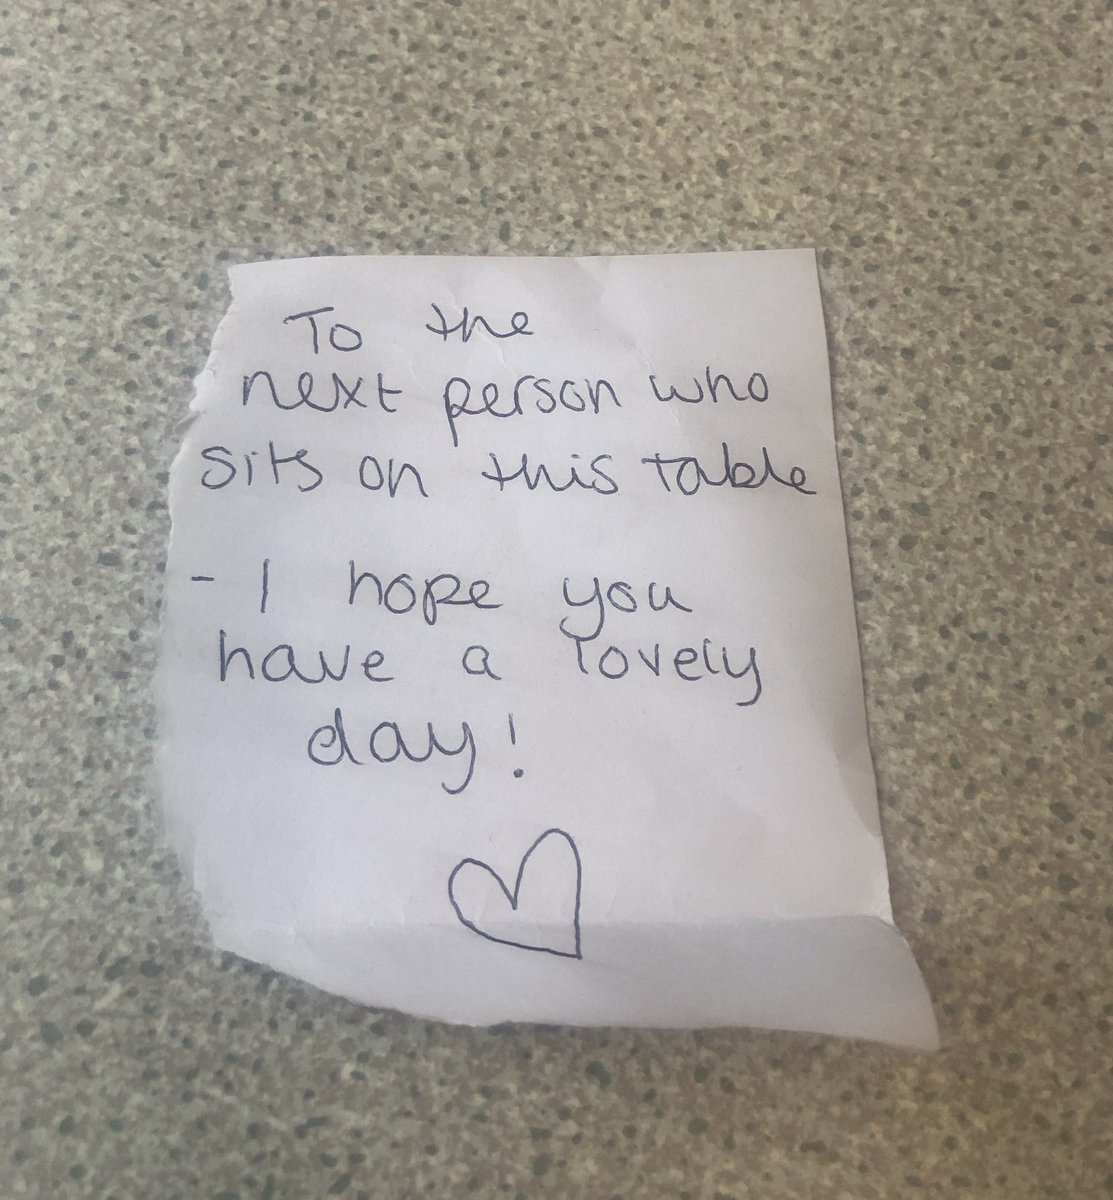 To the
next person who
sits on this table
- I hope you
have a lovely
day!